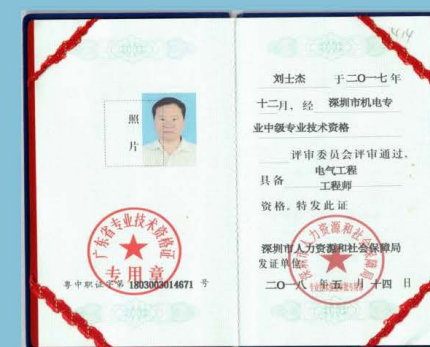 照
片
广东省专业技术资格证
专用章
粤中职证字第 1803003014671 号
刘士杰 于二〇一七年
十二月，经 深圳市机电专
业中级专业技术资格
评审委员会评审通过，
具备 电气工程
工程师
资格。特发此证
深圳市人力资源和社会保障局
发证单位
二〇一八 年 五 月 十四 日